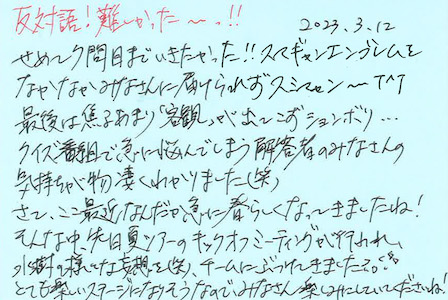 反対語！難しかった〜っ!!
2023.3.12
せめて7問目までいきたかった!!スマギャンエンブレムを
なかなかみなさんに届けられずスミマセン〜T^T
最後は焦るあまり「客観」ゃが出てこずションボリ…
クイズ番組で急に悩んでしまう解答者のみなさんの
気持ちが物凄くわかりました(笑)
さて、ここ最近なんだか急に春らしくなってきましたね！
そんな中、先日夏ツアーのキックオフミーティングが行われ、
水樹の様々な妄想を(笑)、チームにぶつけてきましたよ。
とても楽しいステージになりそうなので、みなさん楽しみにしていてくださいね！